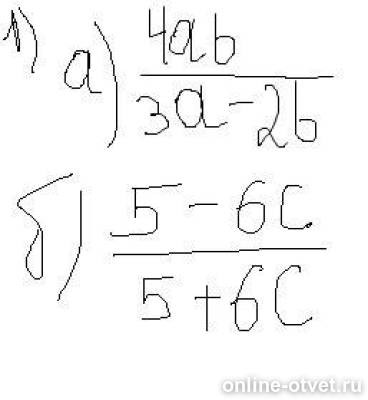 1) а) 4ab
3a - 2b
б) 5 - 6c
5 + 6c
online-otvet.ru